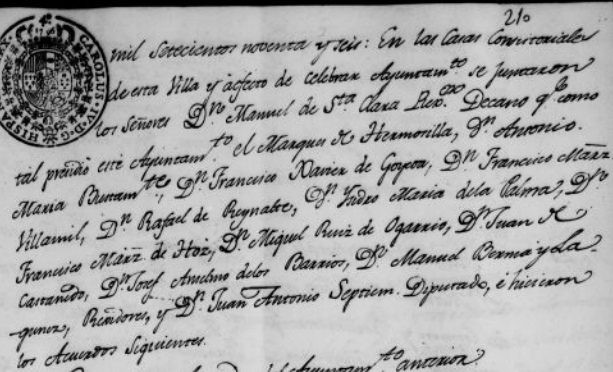 210
CAROLUS IV D G HISPA
mil setecientos noventa y seis: En las Casas Consistoriales
de esta Villa y àefecto de Celebrar Ayuntam.to se juntaron
los Señores D.n Manuel de S.ta Clara Rex.or Decano q.e como
tal presidio este Ayuntam.to el Marques de Hermosilla, D.n Antonio
Maria Bustam.te, D.n Francisco Xavier de Goycoa, D.n Francisco Mârz
Villamil, D.n Rafael de Reynalte, D.n Ysidro Maria dela Palma, D.n
Francisco Mârz de Hoz, D.n Miguel Ruiz de Ogarrio, D.n Juan de
Castanedo, D.n Josef Anselmo delos Barrios, D.n Manuel Berma y La-
gunez, Rexidores, y D.n Juan Antonio Septiem. Diputado, é hicieron
los Acuerdos Siguientes.
Ayuntam.to anterior